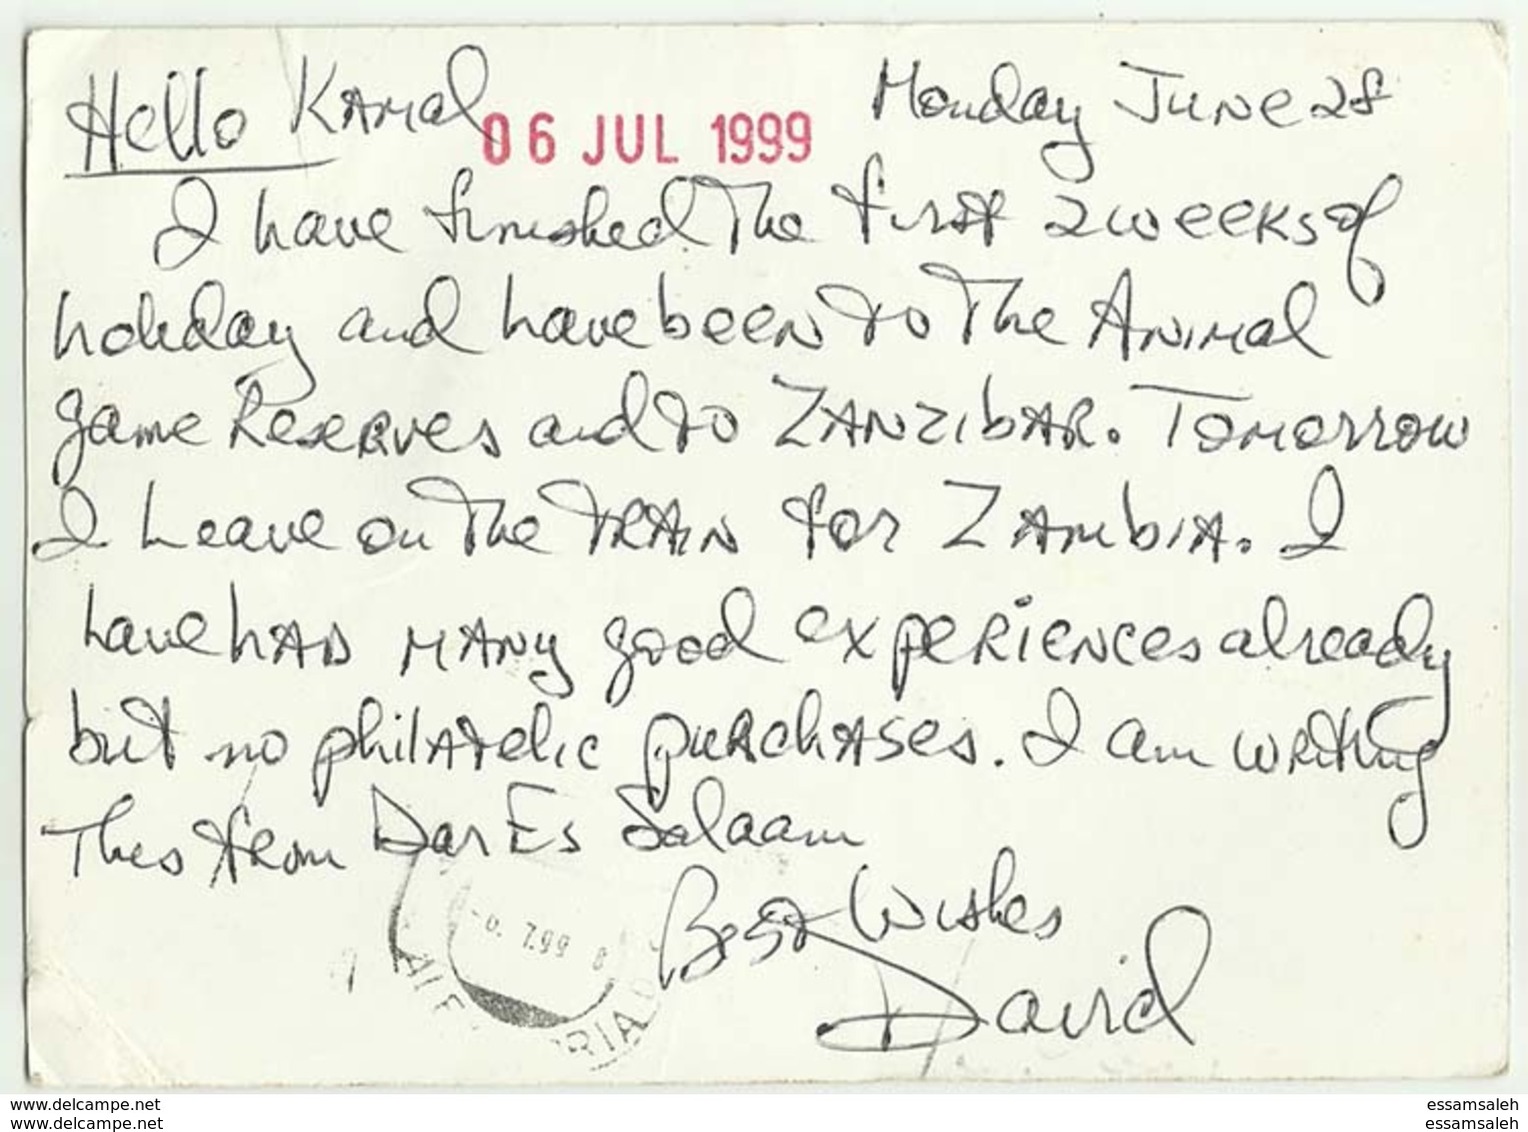 Hello Kamal
06 JUL 1999
Monday June 28
I have finished the first 2 weeks of
holiday and have been to the Animal
game Reserves and to ZANZIBAR. Tomorrow
I leave on the train for ZAMBIA. I
have had many good experiences already
but no philatelic purchases. I am writing
this from Dar Es Salaam
Best Wishes
David
7.99
RIA
www.delcampe.net
www.delcampe.net
essamsaleh
essamsaleh